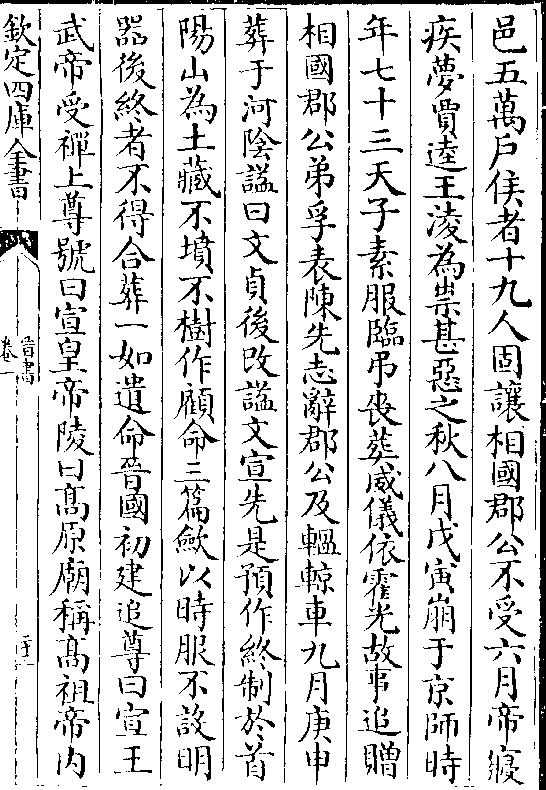 邑五萬戶侯者十九人固讓相國郡公不受六月帝寢
疾夢賈逵王淩為祟甚惡之秋八月戊寅崩于京師時
年七十三天子素服臨弔喪葬威儀依霍光故事追贈
相國郡公弟孚表陳先志辭郡公及轀輬車九月庚申
葬于河隂謚曰文貞後改謚文宣先是預作終制於首
陽山為土藏不墳不樹作顧命三篇斂以時服不設明
器後終者不得合葬一如遺命晉國初建追尊曰宣王
武帝受禪上尊號曰宣皇帝陵曰髙原廟稱髙祖帝内
欽定四庫全書
晉書
卷一